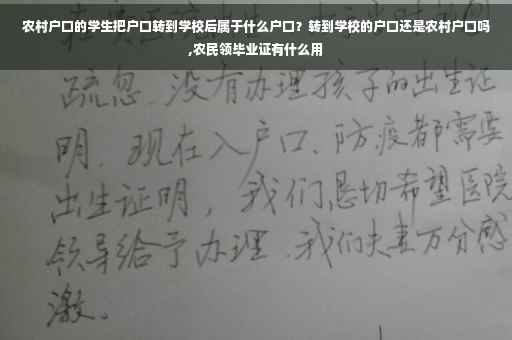 农村户口的学生把户口转到学校后属于什么户口？转到学校的户口还是农村户口吗
,农民领毕业证有什么用
疏忽.没有办理孩子的出生证
明.现在入户口、防疫都需要
出生证明，我们恳切希望医院
领导给予办理.我们夫妻万分感
激。